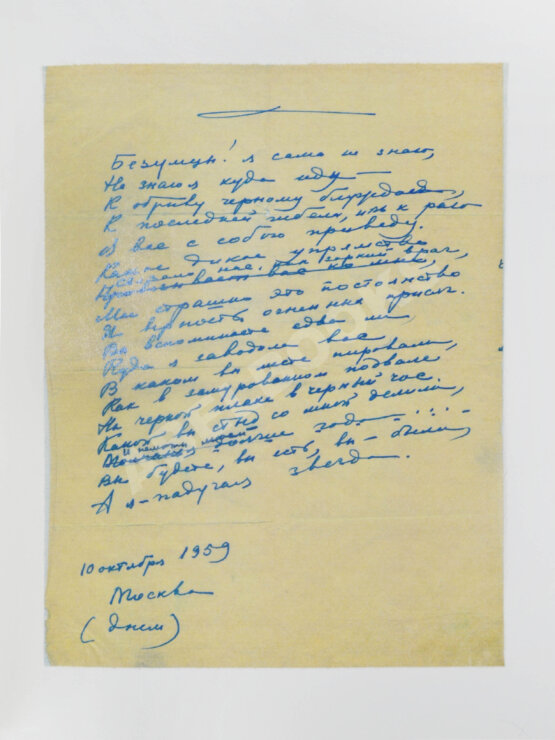 Безумцы! я сама не знаю,
Не знаю я куда иду —
К обрыву черному
К последней гибели, иль к раю
Я вас с собою приведу.
Какое дикое упрямство
вас
Мне страшно это постоянство
И верность огненных присяг.
Вы вспоминаете едва ли
Куда я заводила вас
В каком вы месте пировали,
Как в замурованном подвале
На черной плахе в черный час.
Какой вы стыд со мной делили,
дольше года....
Вы будете, вы есть, вы — были,
А я — падучая звезда.
10 октября 1959
Москва
(днем)